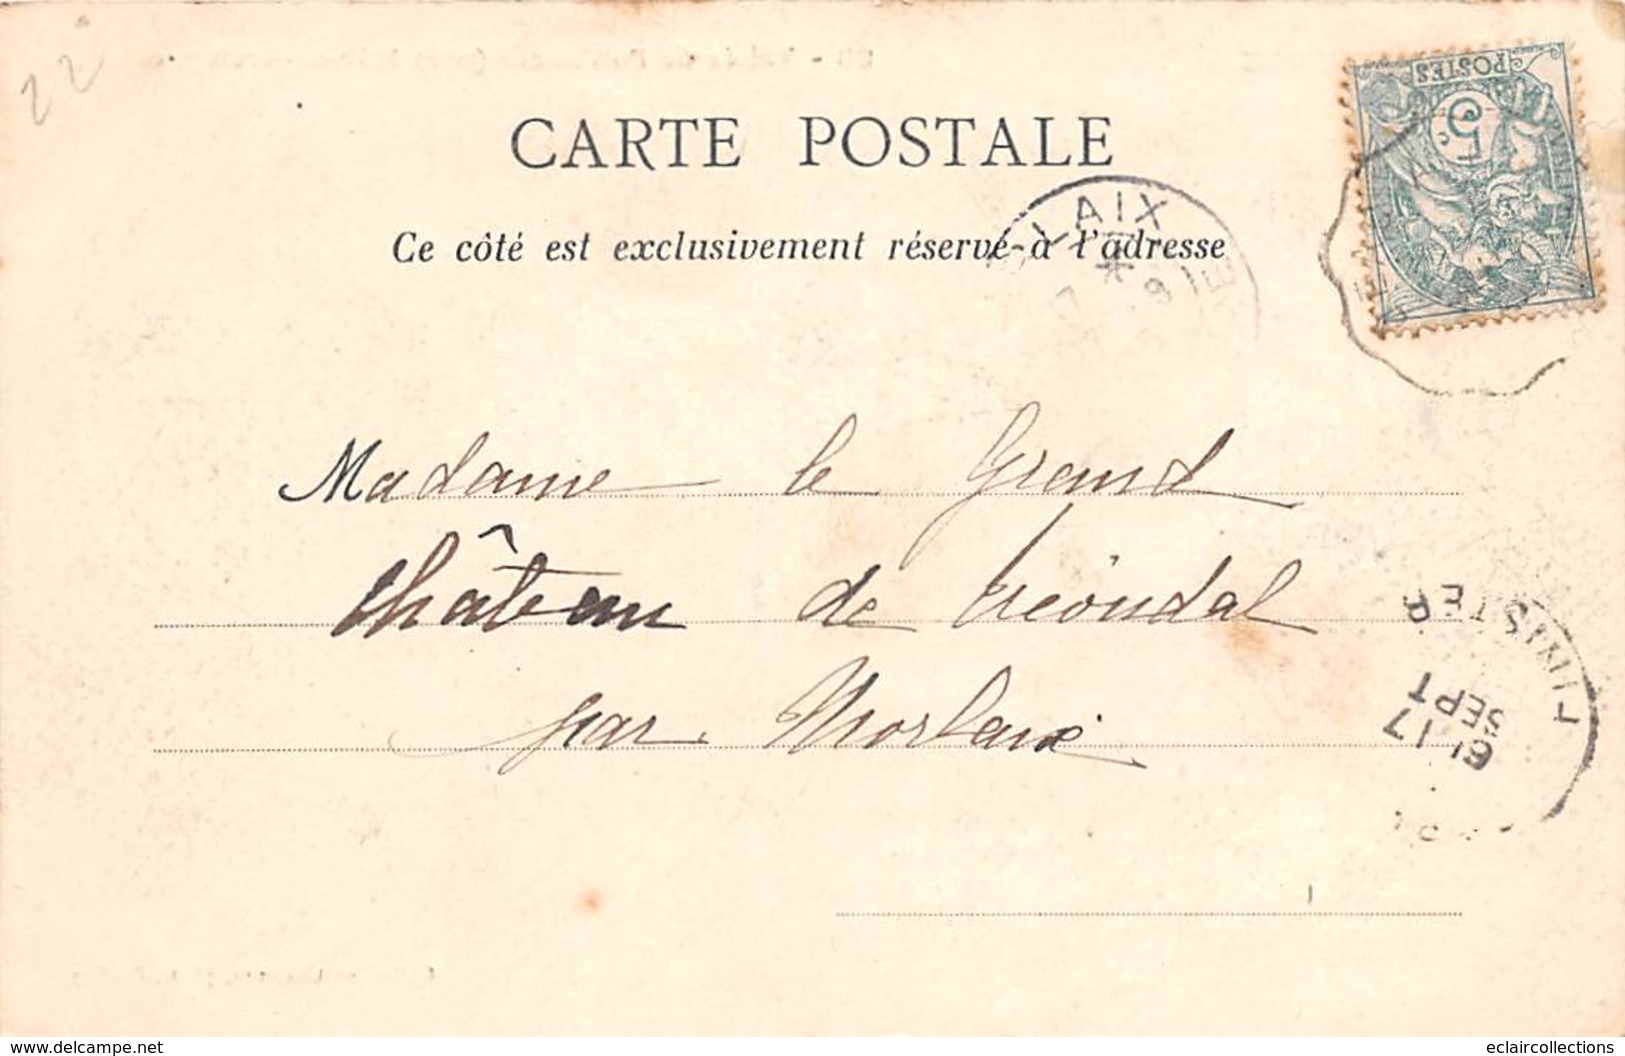 22
POSTES
5
CARTE POSTALE
LAIX
Ce côté est exclusivement réservé à l'adresse
Madame le Grand
château de tréoudal
par Morlaix
FINISTER
17
SEPT
www.delcampe.net
eclaircollections